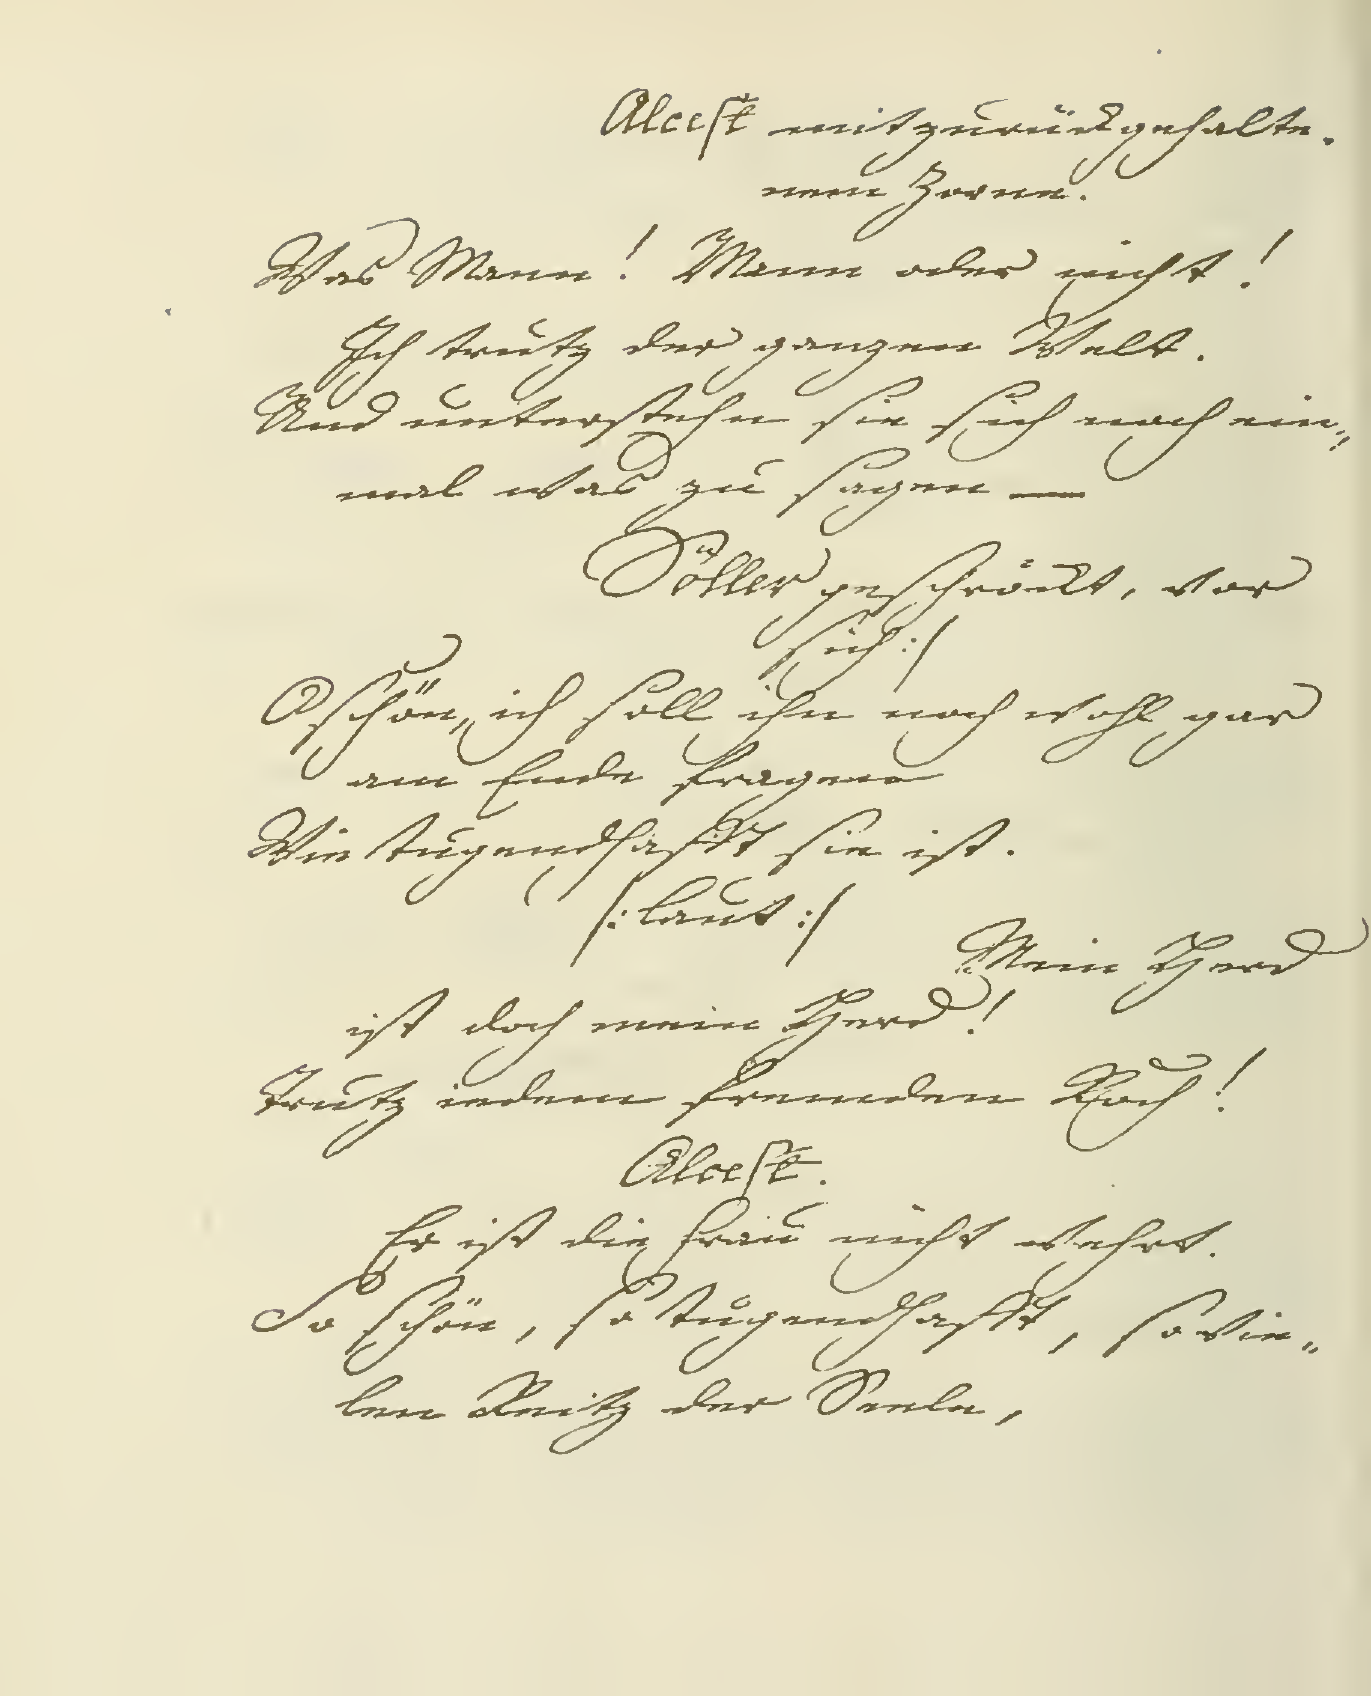 Alceste mit zurückgehalte.
nem Zorne.
Was Mann! Mann oder nicht!
Ich trutz der ganzen Welt.
Und unterstehn sie sich noch ein„
mal was zu sagen —
Söller geschröckt, vor
sich :/
O schön, ich soll ihn noch wohl gar
am Ende fragen
Wie tugendhafft sie ist.
/: laut :/
Mein Herd
ist doch mein Herd!
Trutz iedem fremden Koch!
Alceste.
Er ist die Frau nicht wehrt.
So schön, so tugendhafft, so vie„
len Reitz der Seele,